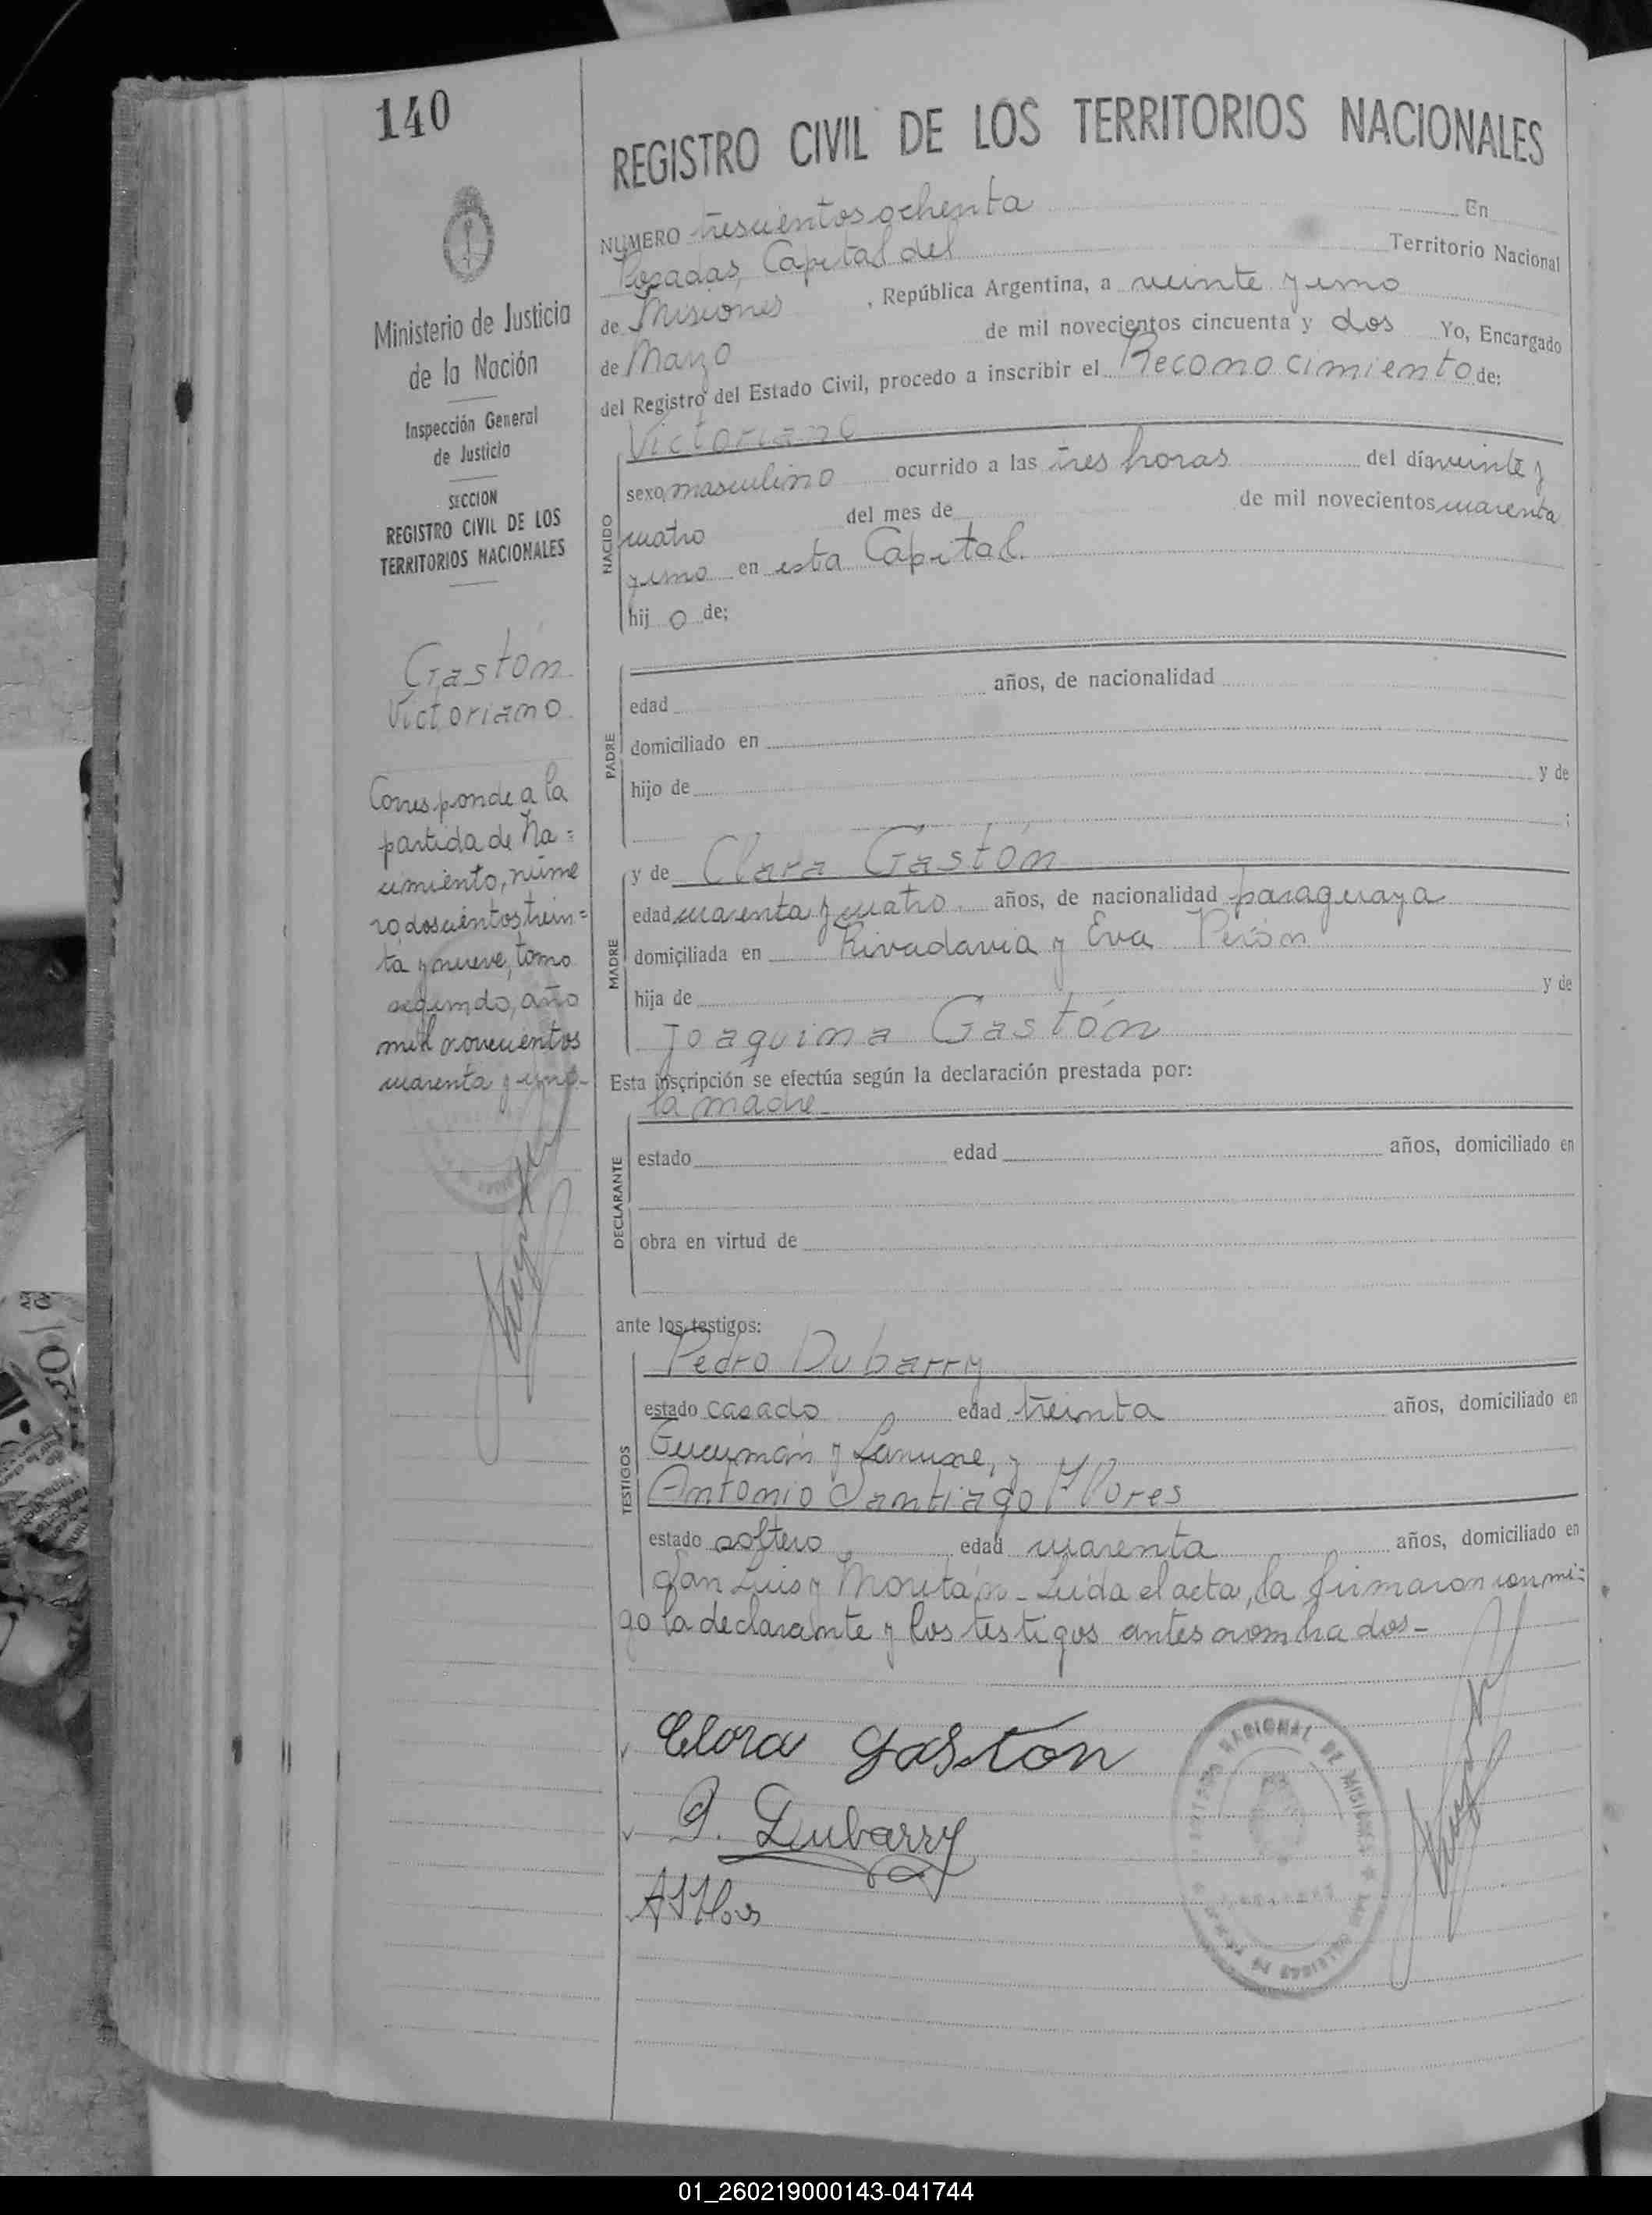 140
REGISTRO CIVIL DE LOS TERRITORIOS NACIONALES
NUMERO trescientos ochenta En
Posadas, Capital del Territorio Nacional
de Misiones, República Argentina, a veinte y uno
de Marzo de mil novecientos cincuenta y dos Yo, Encargado
del Registro del Estado Civil, procedo a inscribir el Reconocimiento de:
Victoriano
NACIDO
sexo masculino ocurrido a las tres horas del día veinte y
cuatro del mes de de mil novecientos cuarenta
y uno en esta Capital.
hij o de;
PADRE
edad años, de nacionalidad
domiciliado en
hijo de y de
;
MADRE
y de Clara Gastón
edad cuarenta y cuatro años, de nacionalidad paraguaya
domiciliada en Rivadavia y Eva Perón
hija de y de
Joaquina Gastón
Esta inscripción se efectúa según la declaración prestada por:
la madre
DECLARANTE
estado edad años, domiciliado en
obra en virtud de
ante los testigos:
TESTIGOS
Pedro Dubarry
estado casado edad treinta años, domiciliado en
Tucumán y Lanusse, y
Antonio Santiago Flores
estado soltero edad cuarenta años, domiciliado en
San Luis y Moritán - Leida el acta, la firmaron conmi=
go la declarante y los testigos antes nombrados-
Clara Gaston
P. Dubarry
Ministerio de Justicia
de la Nación
Inspección General
de Justicia
SECCION
REGISTRO CIVIL DE LOS
TERRITORIOS NACIONALES
Gastón
Victoriano
Corresponde a la
partida de Na=
cimiento, núme
ro doscientos trein=
ta y nueve, tomo
segundo, año
mil novecientos
cuarenta y uno-
NACIONAL DE MISIONES
01_260219000143-041744